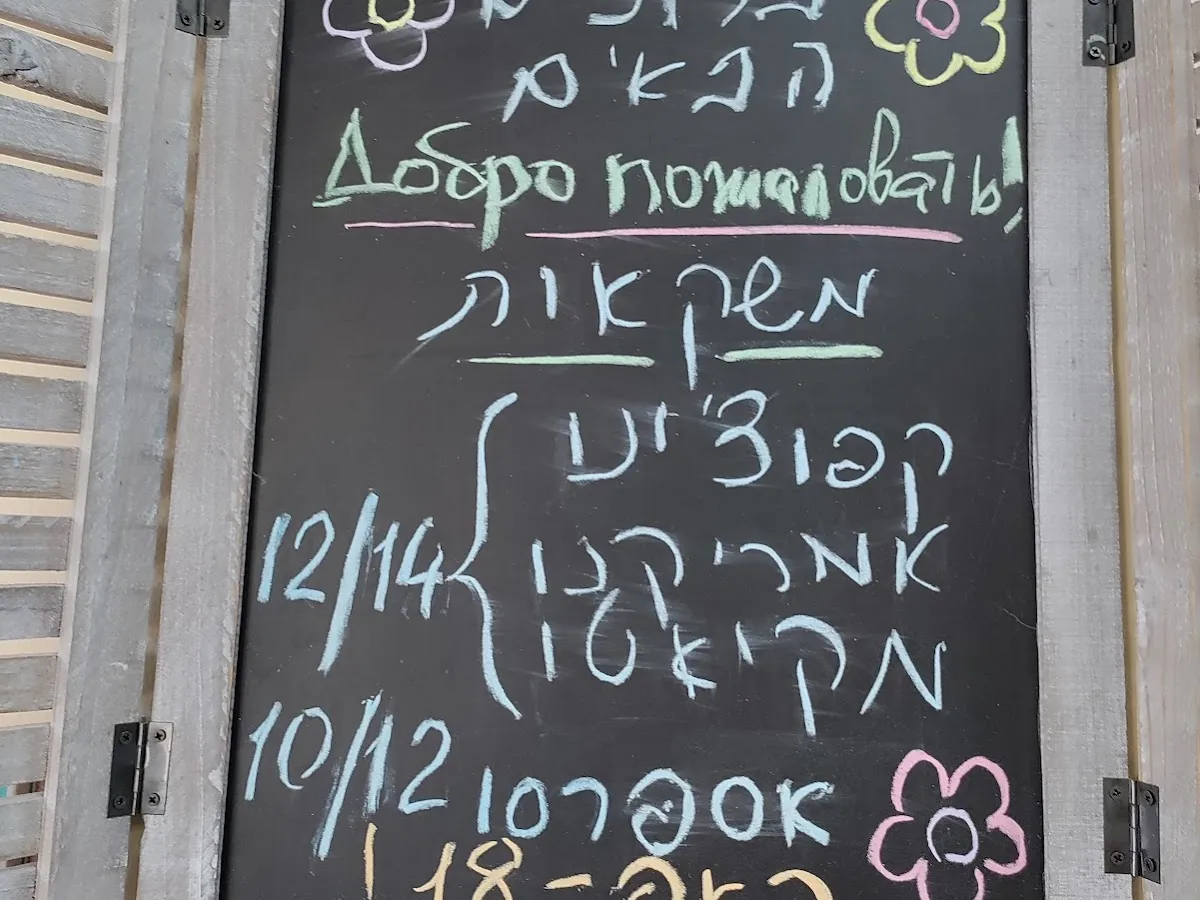 ברוכים
הבאים
Добро пожаловать!
משקאות
קפוצ'ינו
אמריקנו
מקיאטו
12/14
אספרסו 10/12
ראף - 18